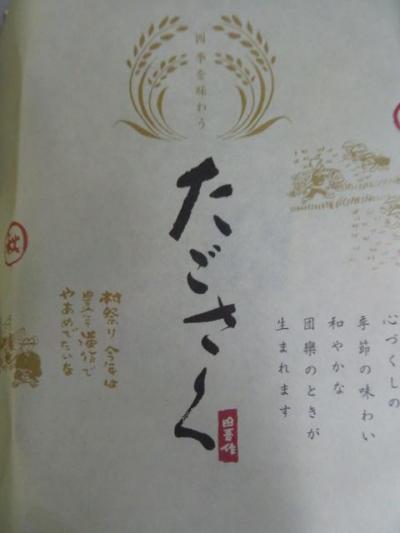 四季を味わう
たごさく
田吾作
心づくしの
季節の味わい
和やかな
団欒のときが
生まれます
村祭り今年は
豊年満作で
やあめでたいな
秋